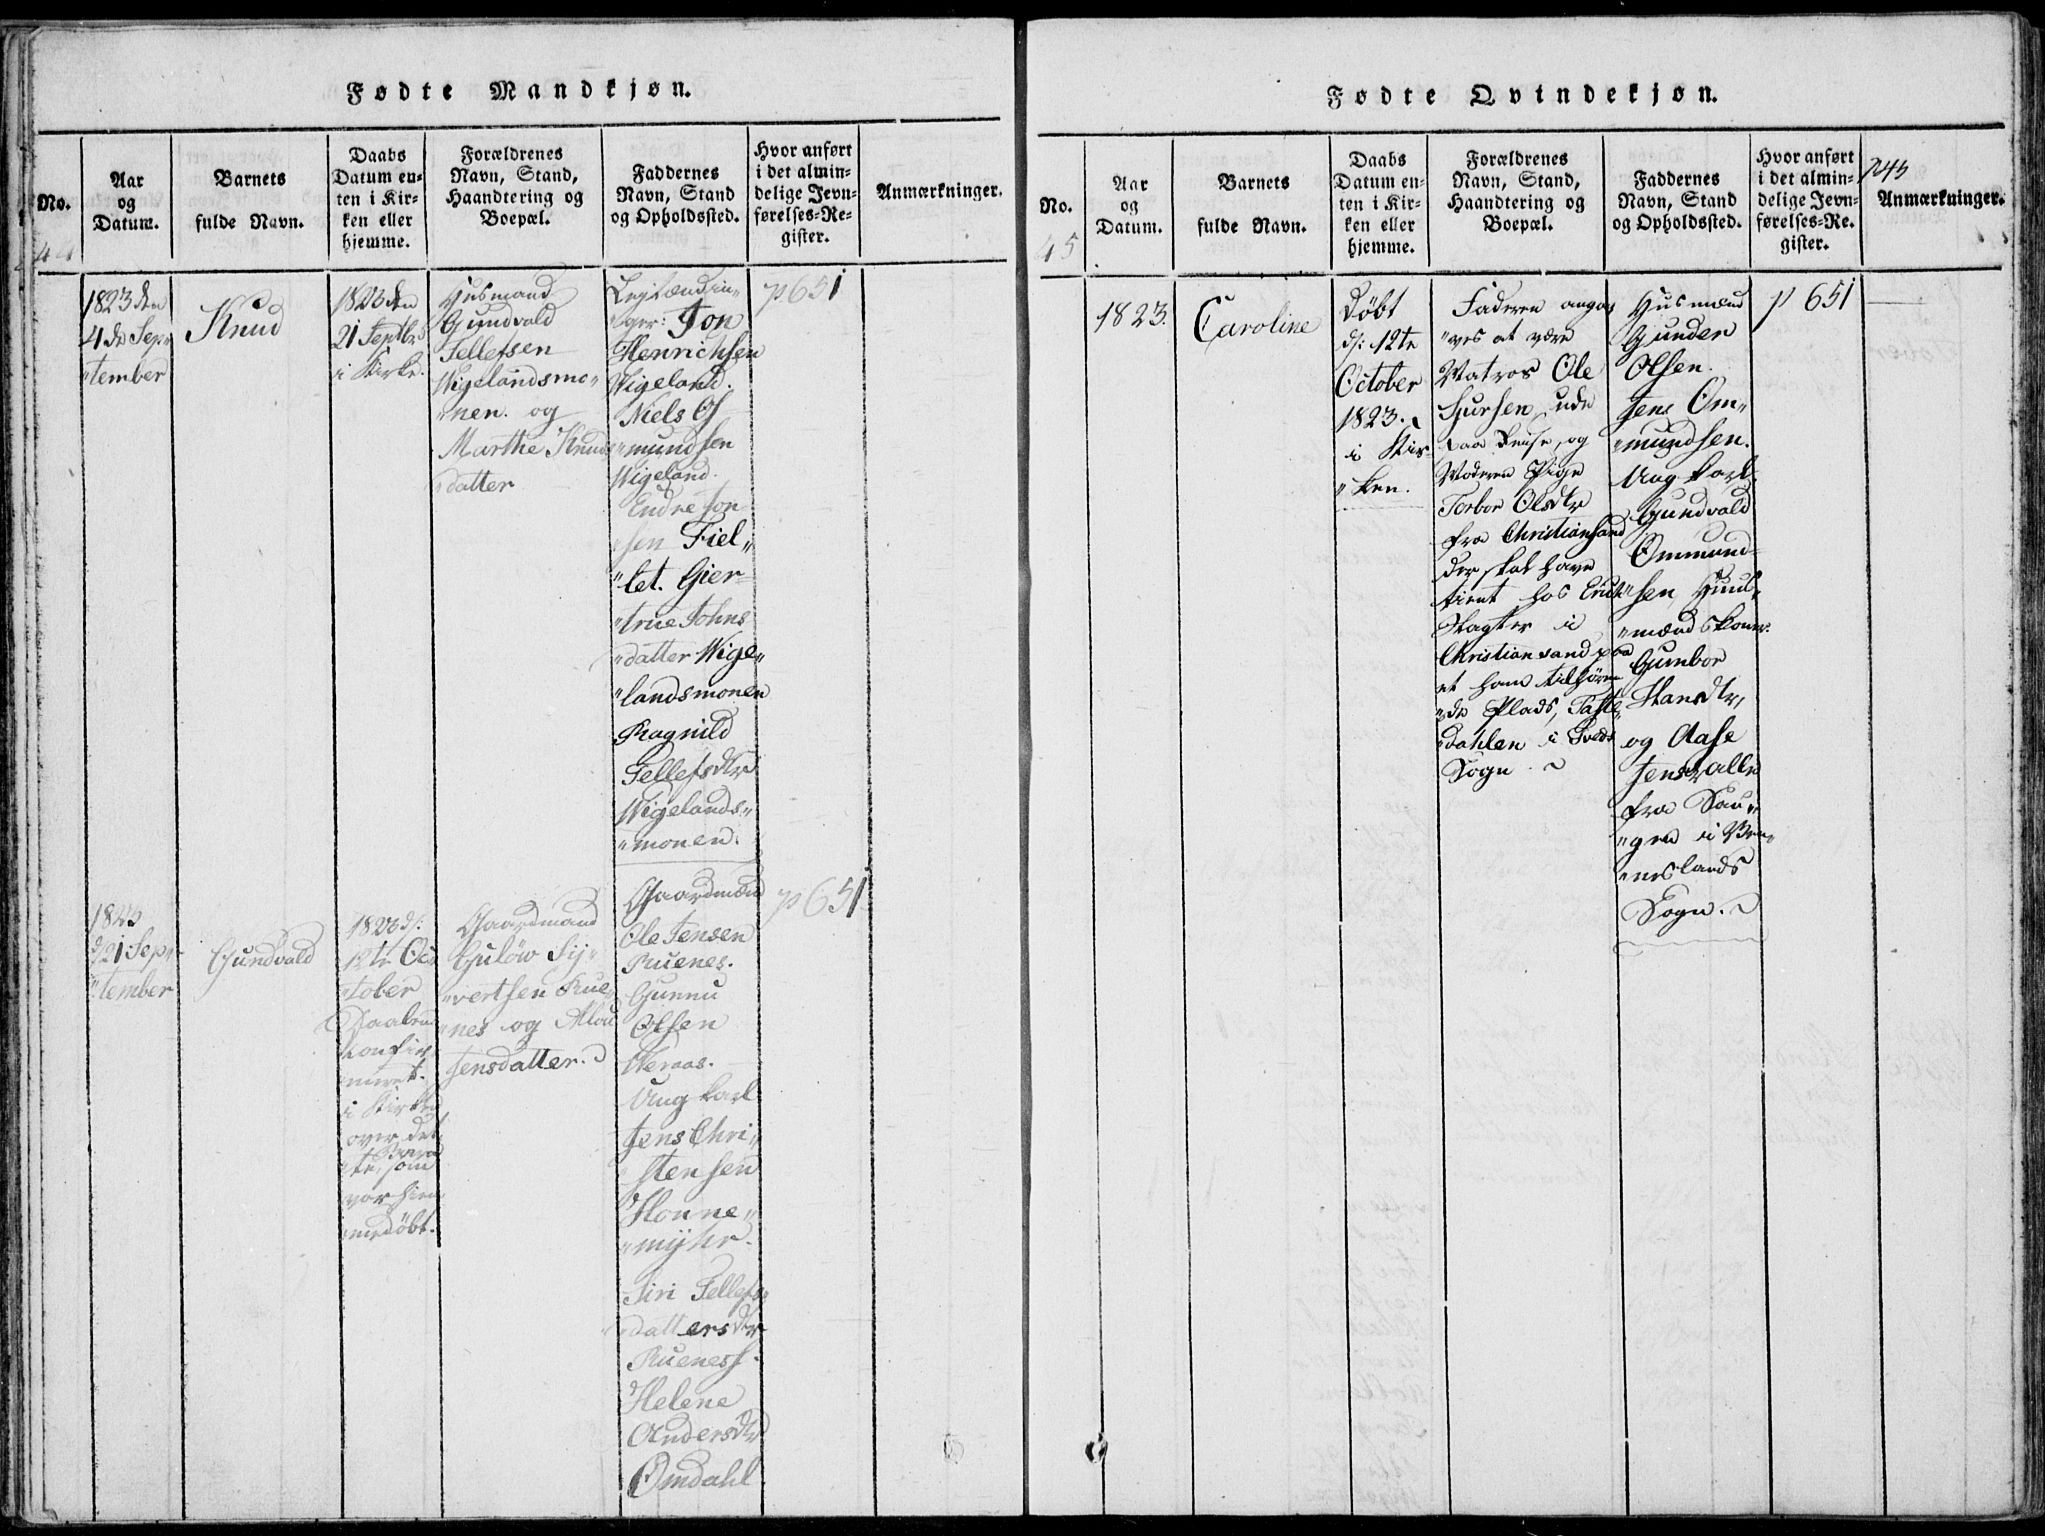 Fødte Mandkjøn.
No.
Aar
og
Datum.
Barnets
fulde Navn.
Daabs
Datum en-
ten i Kir-
ken eller
hjemme.
Forældrenes
Navn, Stand,
Haandtering og
Boepæl.
Faddernes
Navn, Stand
og Opholdssted.
Hvor anført
i det almin-
delige Jevn-
førelses-Re-
gister.
Anmærkninger.
44
1823 den
4de Sep„
„tember
Knud
1823 den
21 Septbr
i Kirke.
Husmand
Gundvold
Tellefsen
Wigelandsmo„
„nen. og
Marthe Knuds
„datter
Leilændin„
„ger: Jon
Henrichsen
Wigeland.
Niels Os
„mundsen
Wigeland.
Endre Jon
„sen Fiel„
„let. Gier„
„true Johns
„datter Wige„
„landsmonen
Ragnild
Tellefsdtr
Wigelands„
„monen.
p 651
1823
d/21 Sep„
„tember
Gundvald
1823 d/:
12te Oc„
„tober
Daaben
konfir„
„meret.
i Kirken
over det„
„te, Barn
som
var hiem„
„medøbt.
Gaardmand
Guløw Sy„
„vertsen Rue„
„nes og Alou
Jensdatter.
Gaardmænd
Ole Jensen
Ruenes.
Gunnu
Olsen
Weraas.
Ung karl
Jens Chri„
„stensen
Honne„
„myhr.
Siri Tellefs„
„datter
Rueness.
Helene
Andersdtr
Omdahl
p 651.
Fødte Qvindekjøn.
No.
Aar
og
Datum.
Barnets
fulde Navn.
Daabs
Datum en-
ten i Kir-
ken eller
hjemme.
Forældrenes
Navn, Stand,
Haandtering og
Boepæl.
Faddernes
Navn, Stand
og Opholdssted.
Hvor anført
i det almin-
delige Jevn-
førelses-Re-
gister.
Anmærkninger.
45
1823.
Caroline
Døbt
d/: 12te
October
1823.
i Kir„
„ken.
Faderen anga„
„ves at være
Matros Ole
Siursen ude
paa Reise, og
Moderen Pige
Torbor Olsdtr
fra Christiansand
der skal have
tient hos
Slagter i
Christiansand paa
et ham tilhøren
„de Plads,
„dahlen i Tveds
Sogn.
Husmænd
Gunder
Olsen.
Jens Om„
„mundsen.
Ung karl
Gundvald
Ommund„
„sen, Huus„
„mænds koner.
Gumbor
Hansdtr,
og Aase
Jensdtr alle
fra Sau„
„gen i Ven„
„neslands
Sogn.
p 651